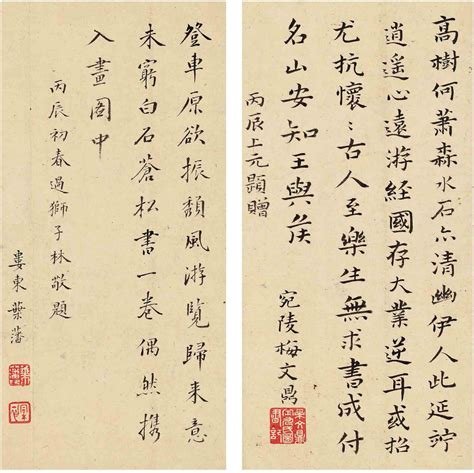 高樹何蕭森水石亦清幽伊人此延竚
逍遥心遠游經國存大業逆耳或招
尤抗懷〻古人至樂生無求書成付
名山安知王與侯
丙辰上元題贈
宛陵梅文鼎
登車原欲振頹風游覽歸來意
未窮白石蒼松書一卷偶然擕
入畫圖中
丙辰初春過獅子林敬題
婁東葉藩